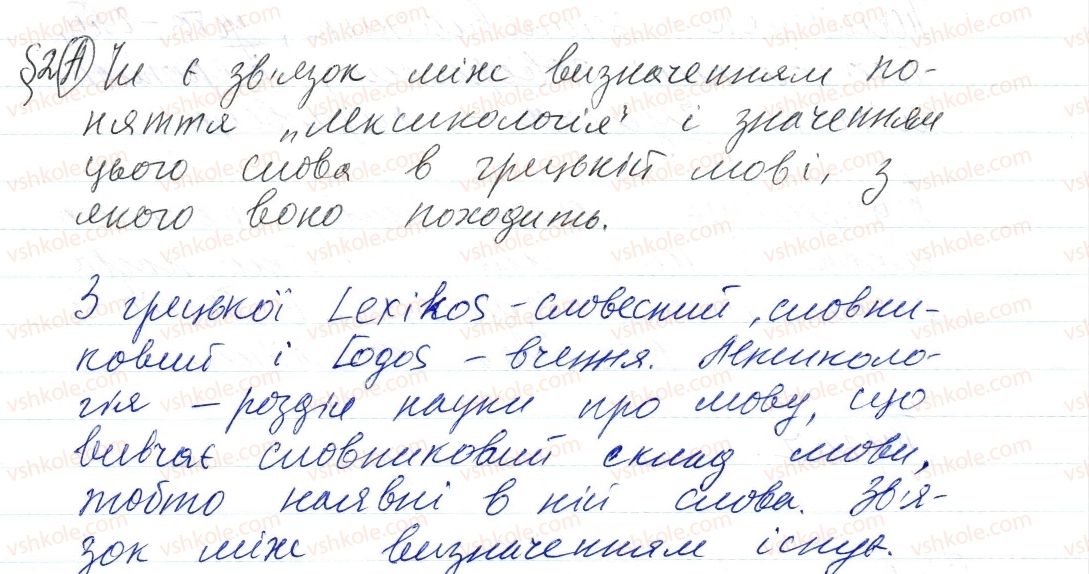 §2 А Чи є зв'язок між визначенням по-
няття „лексикологія" і значенням
цього слова в грецькій мові, з
якого воно походить.
З грецької Lexikos – словесний, словни-
ковий і Logos – вчення. Лексиколо-
гія – розділ науки про мову, що
вивчає словниковий склад мови,
тобто наявні в ній слова. Зв'я-
зок між визначенням існує.